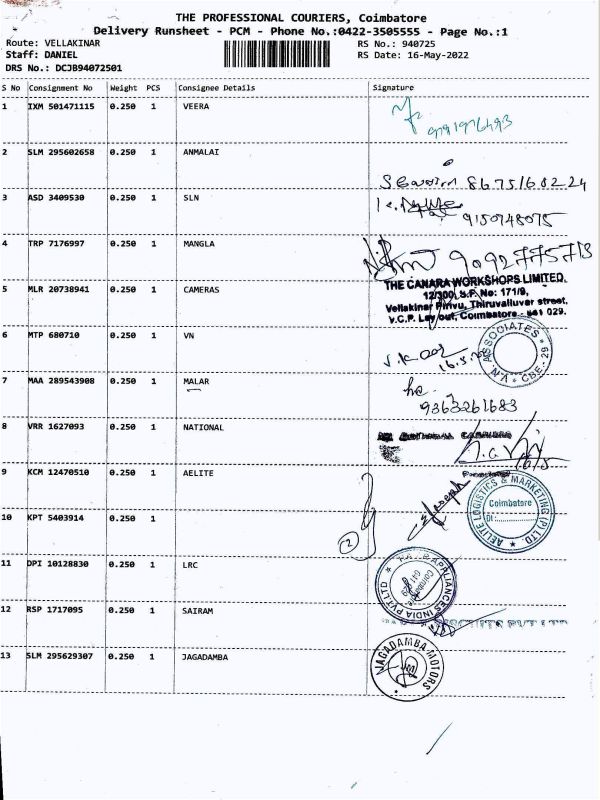 THE PROFESSIONAL COURIERS, Coimbatore
Delivery Runsheet - PCM - Phone No.:0422-3505555 - Page No.:1
Route: VELLAKINAR RS No.: 940725
Staff: DANIEL RS Date: 16-May-2022
DRS No.: DCJB94072501
S No Consignment No Weight PCS Consignee Details Signature
1 IXM 501471115 0.250 1 VEERA
2 SLM 295602658 0.250 1 ANMALAI
8675168224
3 ASD 3409530 0.250 1 SLN
9150748075
4 TRP 7176997 0.250 1 MANGLA
9092775713
5 MLR 20738941 0.250 1 CAMERAS
THE CANARA WORKSHOPS LIMITED.
12/300, S.F. No: 171/9,
Vellakinar Pirivu, Thiruvalluvar street,
V.C.P. Lay out, Coimbatore - 641 029.
6 MTP 680710 0.250 1 VN
ASSOCIATES
7 MAA 289543908 0.250 1 MALAR
9363261683
8 VRR 1627093 0.250 1 NATIONAL
16/5
9 KCM 12470510 0.250 1 AELITE
AELITE LOGISTICS & MARKETING (P) LTD
Coimbatore
10 KPT 5403914 0.250 1
2
11 DPI 10128830 0.250 1 LRC
APPLIANCES INDIA PVT LTD
12 RSP 1717095 0.250 1 SAIRAM
13 SLM 295629307 0.250 1 JAGADAMBA
JAGADAMBA MOTORS